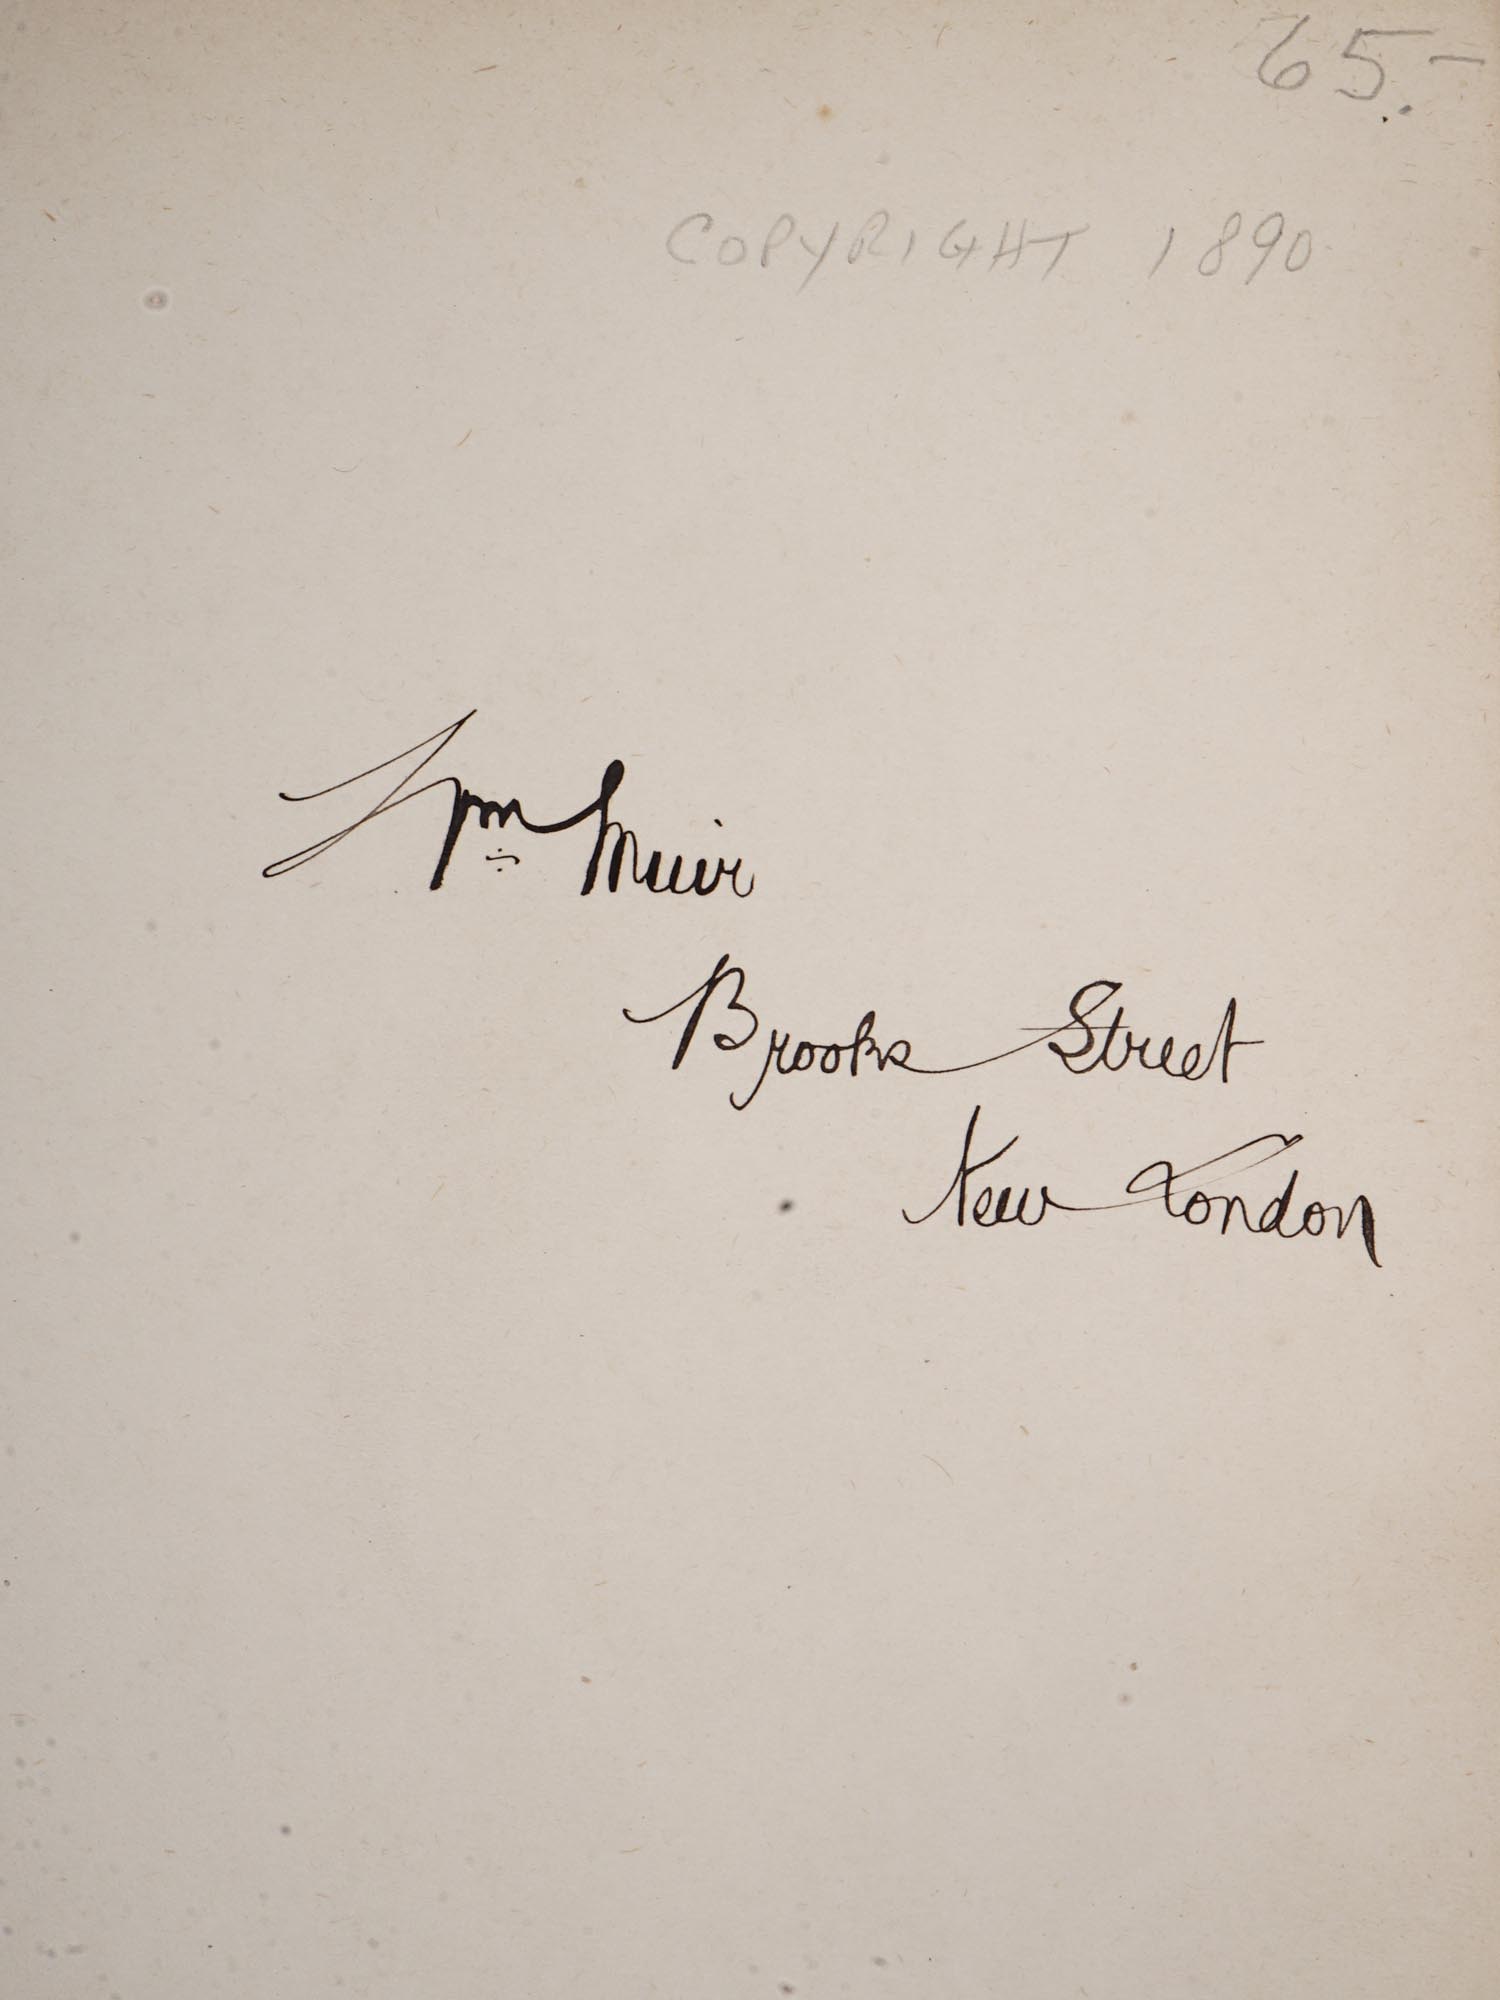 65.-
COPYRIGHT 1890
Wm Muir
Brooks Street
New London